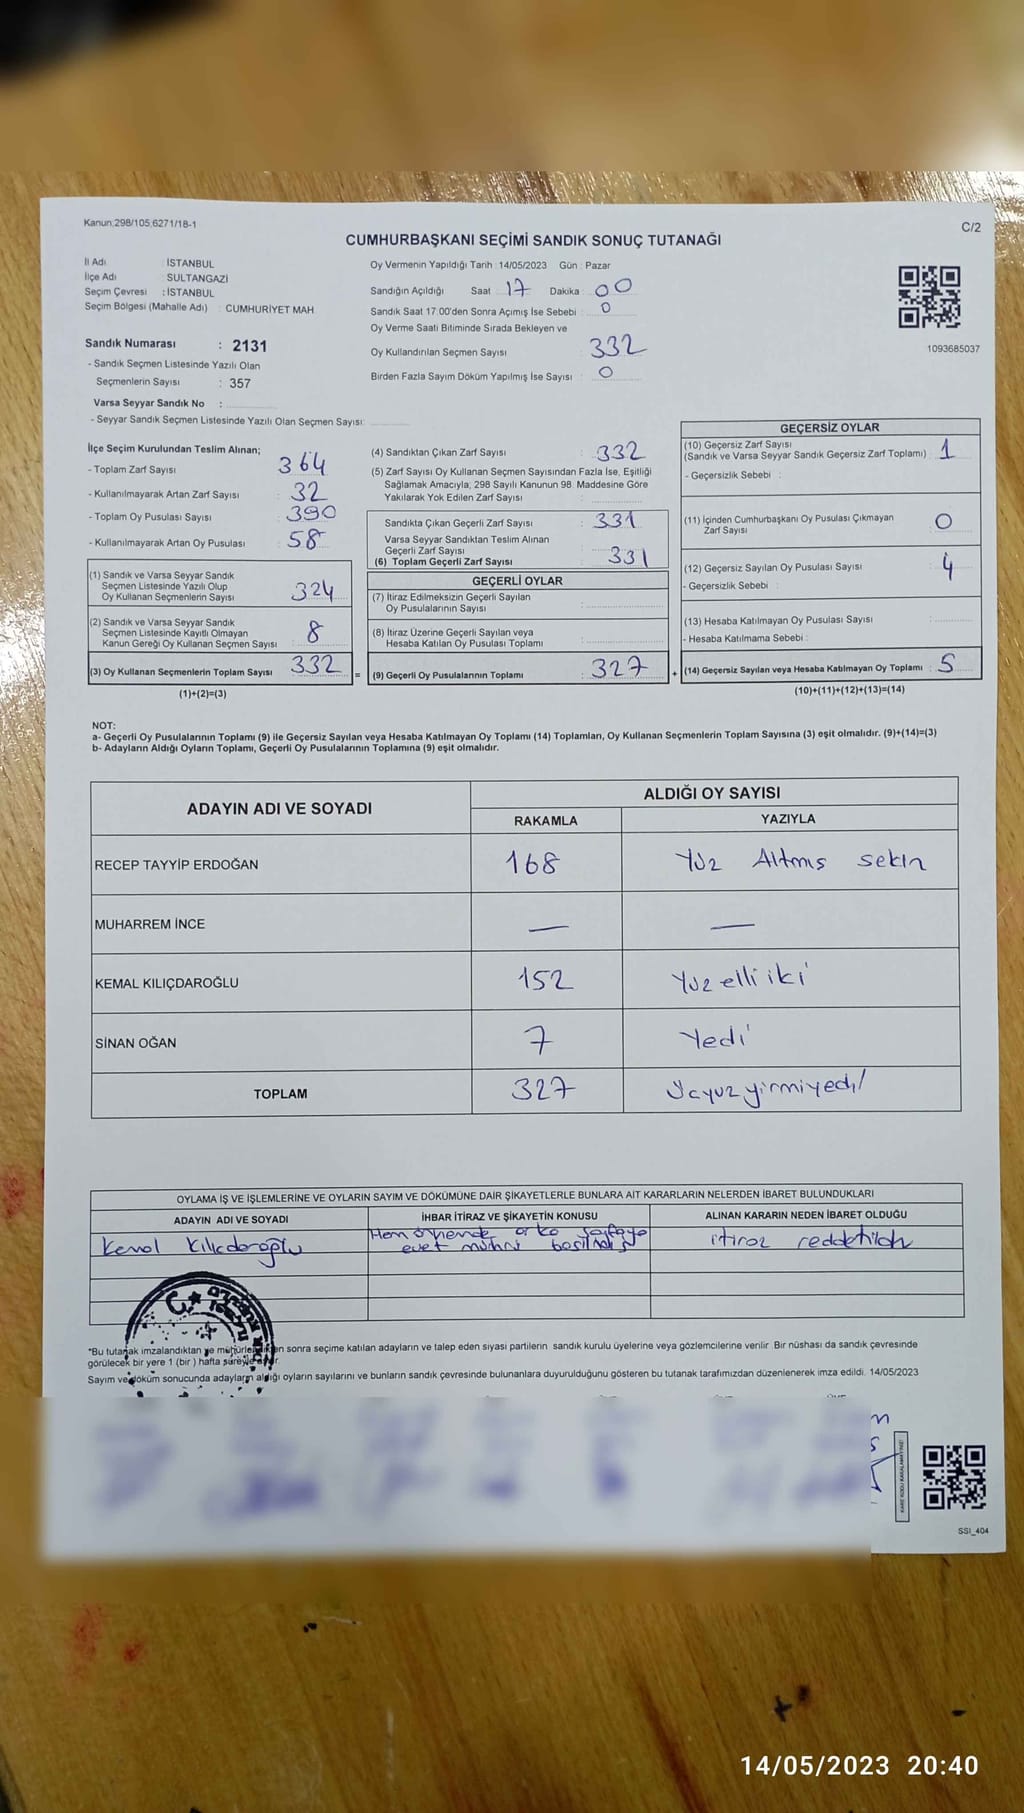 Kanun:298/105,6271/18-1
C/2
CUMHURBAŞKANI SEÇİMİ SANDIK SONUÇ TUTANAĞI
İl Adı : İSTANBUL
İlçe Adı : SULTANGAZİ
Seçim Çevresi : İSTANBUL
Seçim Bölgesi (Mahalle Adı) : CUMHURİYET MAH
Sandık Numarası : 2131
- Sandık Seçmen Listesinde Yazılı Olan
Seçmenlerin Sayısı : 357
Varsa Seyyar Sandık No :
- Seyyar Sandık Seçmen Listesinde Yazılı Olan Seçmen Sayısı:
Oy Vermenin Yapıldığı Tarih : 14/05/2023 Gün : Pazar
Sandığın Açıldığı Saat 17 Dakika : 00
Sandık Saat 17.00'den Sonra Açımış İse Sebebi : 0
Oy Verme Saati Bitiminde Sırada Bekleyen ve
Oy Kullandırılan Seçmen Sayısı : 332
Birden Fazla Sayım Döküm Yapılmış İse Sayısı : 0
1093685037
İlçe Seçim Kurulundan Teslim Alınan;
- Toplam Zarf Sayısı : 364
- Kullanılmayarak Artan Zarf Sayısı : 32
- Toplam Oy Pusulası Sayısı : 390
- Kullanılmayarak Artan Oy Pusulası : 58
(1) Sandık ve Varsa Seyyar Sandık
Seçmen Listesinde Yazılı Olup
Oy Kullanan Seçmenlerin Sayısı : 324
(2) Sandık ve Varsa Seyyar Sandık
Seçmen Listesinde Kayıtlı Olmayan
Kanun Gereği Oy Kullanan Seçmen Sayısı : 8
(3) Oy Kullanan Seçmenlerin Toplam Sayısı : 332
(1)+(2)=(3)
=
(4) Sandıktan Çıkan Zarf Sayısı : 332
(5) Zarf Sayısı Oy Kullanan Seçmen Sayısından Fazla İse, Eşitliği
Sağlamak Amacıyla, 298 Sayılı Kanunun 98. Maddesine Göre
Yakılarak Yok Edilen Zarf Sayısı :
Sandıkta Çıkan Geçerli Zarf Sayısı : 331
Varsa Seyyar Sandıktan Teslim Alınan
Geçerli Zarf Sayısı :
(6) Toplam Geçerli Zarf Sayısı : 331
GEÇERLİ OYLAR
(7) İtiraz Edilmeksizin Geçerli Sayılan
Oy Pusulalarının Sayısı :
(8) İtiraz Üzerine Geçerli Sayılan veya
Hesaba Katılan Oy Pusulası Toplamı :
(9) Geçerli Oy Pusulalarının Toplamı : 327
+
GEÇERSİZ OYLAR
(10) Geçersiz Zarf Sayısı
(Sandık ve Varsa Seyyar Sandık Geçersiz Zarf Toplamı) : 1
- Geçersizlik Sebebi :
(11) İçinden Cumhurbaşkanı Oy Pusulası Çıkmayan
Zarf Sayısı : 0
(12) Geçersiz Sayılan Oy Pusulası Sayısı : 4
- Geçersizlik Sebebi :
(13) Hesaba Katılmayan Oy Pusulası Sayısı :
- Hesaba Katılmama Sebebi :
(14) Geçersiz Sayılan veya Hesaba Katılmayan Oy Toplamı : 5
(10)+(11)+(12)+(13)=(14)
NOT:
a- Geçerli Oy Pusulalarının Toplamı (9) ile Geçersiz Sayılan veya Hesaba Katılmayan Oy Toplamı (14) Toplamları, Oy Kullanan Seçmenlerin Toplam Sayısına (3) eşit olmalıdır. (9)+(14)=(3)
b- Adayların Aldığı Oyların Toplamı, Geçerli Oy Pusulalarının Toplamına (9) eşit olmalıdır.
ADAYIN ADI VE SOYADI
ALDIĞI OY SAYISI
RAKAMLA YAZIYLA
RECEP TAYYİP ERDOĞAN 168 Yüz Altmış sekin
MUHARREM İNCE — —
KEMAL KILIÇDAROĞLU 152 Yüz elli iki
SİNAN OĞAN 7 Yedi
TOPLAM 327 Üçyüz yirmiyedi
OYLAMA İŞ VE İŞLEMLERİNE VE OYLARIN SAYIM VE DÖKÜMÜNE DAİR ŞİKAYETLERLE BUNLARA AİT KARARLARIN NELERDEN İBARET BULUNDUKLARI
ADAYIN ADI VE SOYADI İHBAR İTİRAZ VE ŞİKAYETİN KONUSU ALINAN KARARIN NEDEN İBARET OLDUĞU
Kemal Kılıcdaroğlu Hem önemde arka sayfaya itiraz reddetildi
evet mührü basılmış
*Bu tutanak imzalandıktan ve mühürlendikten sonra seçime katılan adayların ve talep eden siyasi partilerin sandık kurulu üyelerine veya gözlemcilerine verilir. Bir nüshası da sandık çevresinde
görülecek bir yere 1 (bir) hafta süreyle asılır.
Sayım ve döküm sonucunda adayların aldığı oyların sayılarını ve bunların sandık çevresinde bulunanlara duyurulduğunu gösteren bu tutanak tarafımızdan düzenlenerek imza edildi. 14/05/2023
KARE KODU KARALAMAYINIZ!
SSI_404
14/05/2023 20:40